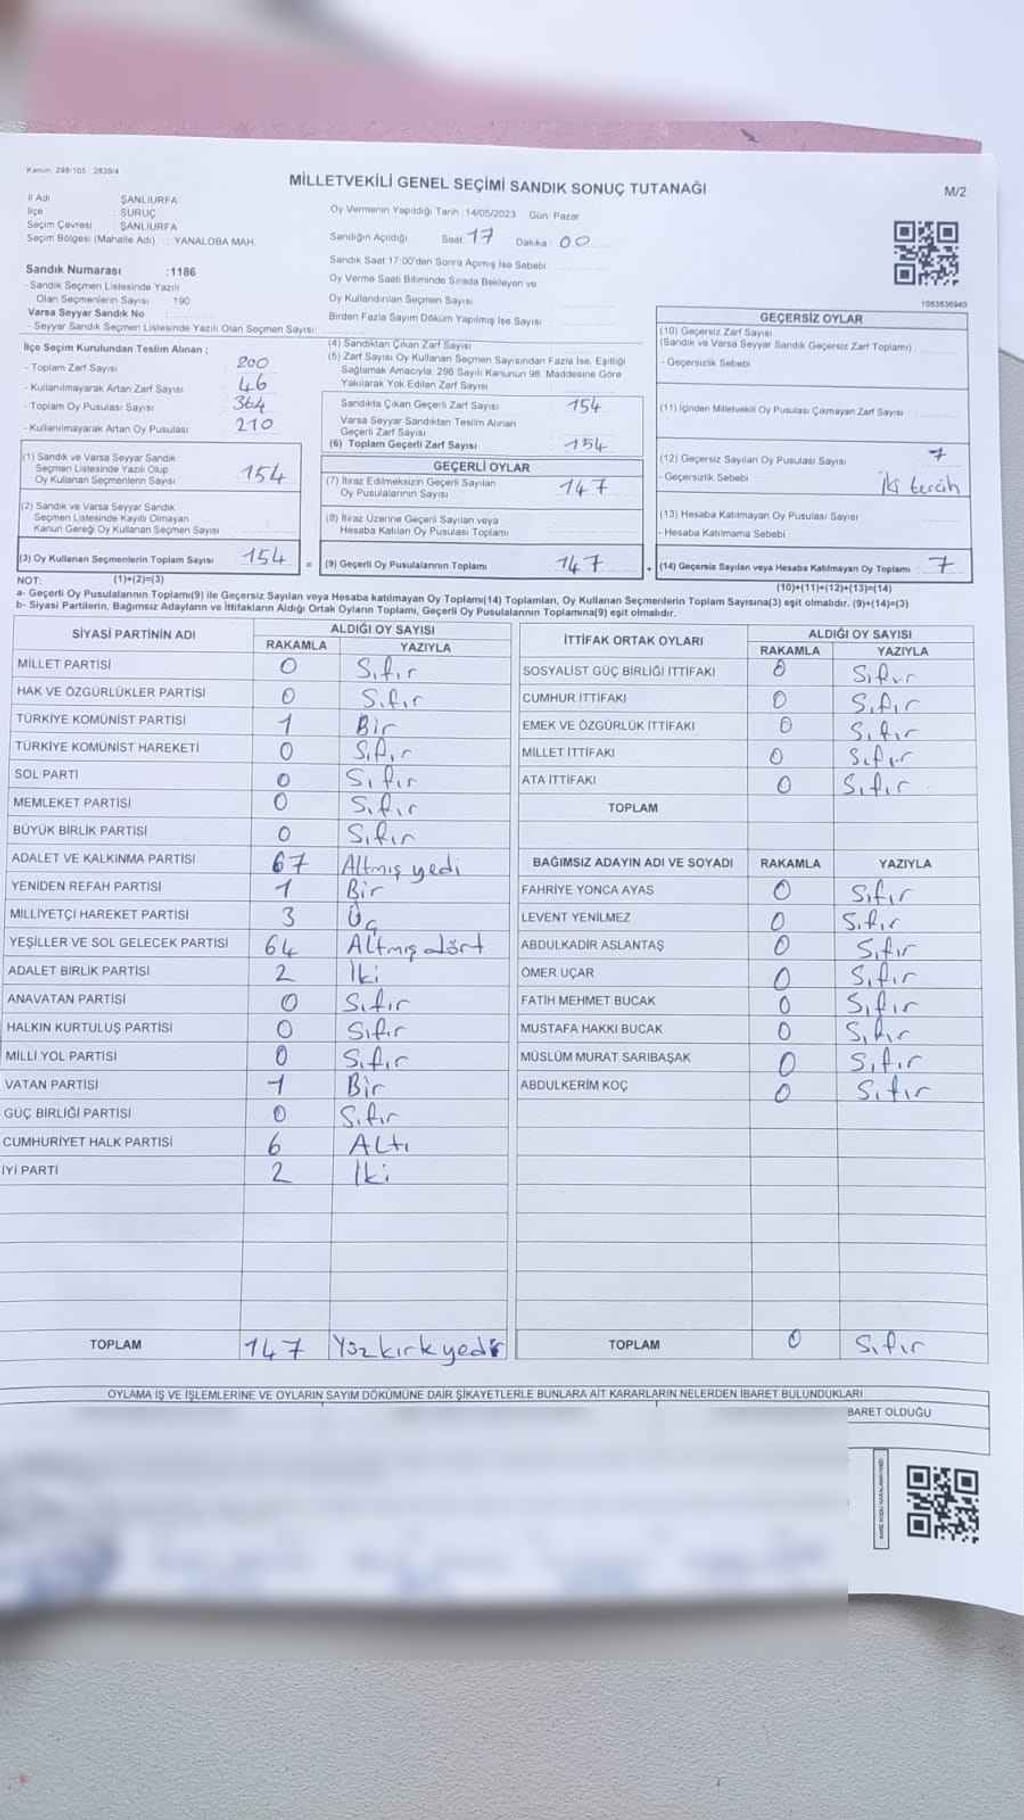 Kanun: 298/105 : 2839/4
MİLLETVEKİLİ GENEL SEÇİMİ SANDIK SONUÇ TUTANAĞI
M/2
İl Adı : ŞANLIURFA
İlçe : SURUÇ
Seçim Çevresi : ŞANLIURFA
Seçim Bölgesi (Mahalle Adı) : YANALOBA MAH.
Sandık Numarası :1186
Sandık Seçmen Listesinde Yazılı
Olan Seçmenlerin Sayısı : 190
Varsa Seyyar Sandık No
- Seyyar Sandık Seçmen Listesinde Yazılı Olan Seçmen Sayısı:
Oy Vermenin Yapıldığı Tarih :14/05/2023 Gün: Pazar
Sandığın Açıldığı Saat: 17 Dakika: 00
Sandık Saat 17:00'den Sonra Açımış İse Sebebi
Oy Verme Saati Bitiminde Sırada Bekleyen ve
Oy Kullandırılan Seçmen Sayısı
Birden Fazla Sayım Döküm Yapılmış İse Sayısı
1083636940
İlçe Seçim Kurulundan Teslim Alınan :
- Toplam Zarf Sayısı 200
- Kullanılmayarak Artan Zarf Sayısı 46
- Toplam Oy Pusulası Sayısı 364
- Kullanılmayarak Artan Oy Pusulası 210
(1) Sandık ve Varsa Seyyar Sandık
Seçmen Listesinde Yazılı Olup
Oy Kullanan Seçmenlerin Sayısı 154
(2) Sandık ve Varsa Seyyar Sandık
Seçmen Listesinde Kayıtlı Olmayan
Kanun Gereği Oy Kullanan Seçmen Sayısı
(3) Oy Kullanan Seçmenlerin Toplam Sayısı 154
(4) Sandıktan Çıkan Zarf Sayısı
(5) Zarf Sayısı Oy Kullanan Seçmen Sayısından Fazla İse, Eşitliği
Sağlamak Amacıyla, 298 Sayılı Kanunun 98. Maddesine Göre
Yakılarak Yok Edilen Zarf Sayısı
Sandıkta Çıkan Geçerli Zarf Sayısı 154
Varsa Seyyar Sandıktan Teslim Alınan
Geçerli Zarf Sayısı
(6) Toplam Geçerli Zarf Sayısı 154
GEÇERLİ OYLAR
(7) İtiraz Edilmeksizin Geçerli Sayılan
Oy Pusulalarının Sayısı 147
(8) İtiraz Üzerine Geçerli Sayılan veya
Hesaba Katılan Oy Pusulası Toplamı
= (9) Geçerli Oy Pusulalarının Toplamı 147
GEÇERSİZ OYLAR
(10) Geçersiz Zarf Sayısı
(Sandık ve Varsa Seyyar Sandık Geçersiz Zarf Toplamı)
- Geçersizlik Sebebi
(11) İçinden Milletvekili Oy Pusulası Çıkmayan Zarf Sayısı
(12) Geçersiz Sayılan Oy Pusulası Sayısı 7
- Geçersizlik Sebebi iki tercih
(13) Hesaba Katılmayan Oy Pusulası Sayısı
- Hesaba Katılmama Sebebi
+ (14) Geçersiz Sayılan veya Hesaba Katılmayan Oy Toplamı 7
NOT: (1)+(2)=(3)
(10)+(11)+(12)+(13)=(14)
a- Geçerli Oy Pusulalarının Toplamı(9) ile Geçersiz Sayılan veya Hesaba katılmayan Oy Toplamı(14) Toplamları, Oy Kullanan Seçmenlerin Toplam Sayısına(3) eşit olmalıdır. (9)+(14)=(3)
b- Siyasi Partilerin, Bağımsız Adayların ve İttifakların Aldığı Ortak Oyların Toplamı, Geçerli Oy Pusulalarının Toplamına(9) eşit olmalıdır.
SİYASİ PARTİNİN ADI ALDIĞI OY SAYISI
RAKAMLA YAZIYLA
MİLLET PARTİSİ 0 Sıfır
HAK VE ÖZGÜRLÜKLER PARTİSİ 0 Sıfır
TÜRKİYE KOMÜNİST PARTİSİ 1 Bir
TÜRKİYE KOMÜNİST HAREKETİ 0 Sıfır
SOL PARTİ 0 Sıfır
MEMLEKET PARTİSİ 0 Sıfır
BÜYÜK BİRLİK PARTİSİ 0 Sıfır
ADALET VE KALKINMA PARTİSİ 67 Altmış yedi
YENİDEN REFAH PARTİSİ 1 Bir
MİLLİYETÇİ HAREKET PARTİSİ 3 Üç
YEŞİLLER VE SOL GELECEK PARTİSİ 64 Altmış dört
ADALET BİRLİK PARTİSİ 2 İki
ANAVATAN PARTİSİ 0 Sıfır
HALKIN KURTULUŞ PARTİSİ 0 Sıfır
MİLLİ YOL PARTİSİ 0 Sıfır
VATAN PARTİSİ 1 Bir
GÜÇ BİRLİĞİ PARTİSİ 0 Sıfır
CUMHURİYET HALK PARTİSİ 6 Altı
İYİ PARTİ 2 İki
TOPLAM 147 Yüzkırkyedi
İTTİFAK ORTAK OYLARI ALDIĞI OY SAYISI
RAKAMLA YAZIYLA
SOSYALİST GÜÇ BİRLİĞİ İTTİFAKI 0 Sıfır
CUMHUR İTTİFAKI 0 Sıfır
EMEK VE ÖZGÜRLÜK İTTİFAKI 0 Sıfır
MİLLET İTTİFAKI 0 Sıfır
ATA İTTİFAKI 0 Sıfır
TOPLAM
BAĞIMSIZ ADAYIN ADI VE SOYADI RAKAMLA YAZIYLA
FAHRİYE YONCA AYAS 0 Sıfır
LEVENT YENİLMEZ 0 Sıfır
ABDULKADİR ASLANTAŞ 0 Sıfır
ÖMER UÇAR 0 Sıfır
FATİH MEHMET BUCAK 0 Sıfır
MUSTAFA HAKKI BUCAK 0 Sıfır
MÜSLÜM MURAT SARIBAŞAK 0 Sıfır
ABDULKERİM KOÇ 0 Sıfır
TOPLAM 0 Sıfır
OYLAMA İŞ VE İŞLEMLERİNE VE OYLARIN SAYIM DÖKÜMÜNE DAİR ŞİKAYETLERLE BUNLARA AİT KARARLARIN NELERDEN İBARET BULUNDUKLARI
BARET OLDUĞU